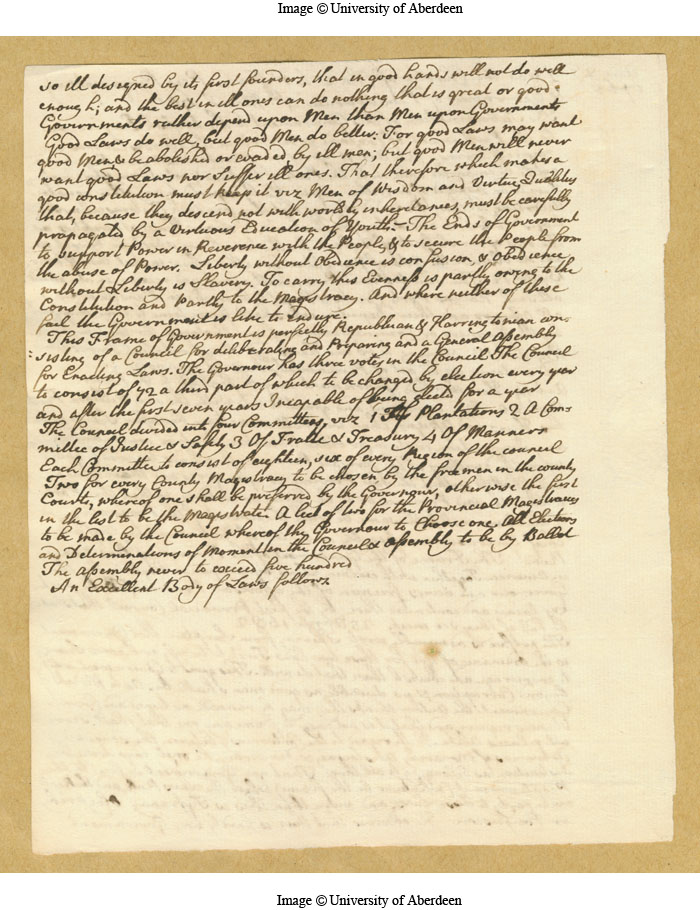 Image © University of Aberdeen
so ill designed by its first founders, that in good hands will not do well
enough; and the best in ill ones can do nothing that is great or good.
Governments rather depend upon Men than Men upon Governments
Good Laws do well, but good Men do better. For good Laws may want
good Men & be abolished or evaded by ill men; but good Men will never
want good Laws nor Suffer ill ones. That therefore which makes a
good constitution must keep it viz Men of Wisdom and Virtue, Qualities
that, because they descend not with worldly inheritances, must be carefully
propagated by a Virtuous Education of Youth.— The Ends of Government
to support Power in Reverence with the People, & to secure the People from
the abuse of Power. Liberty without Obedience is confusion, & Obedience
without Liberty is Slavery. To carry this Evenness is partly owing to the
Constitution and Partly to the Magistracy. And where neither of these
fail the Government is like to Endure.
This Frame of Government is perfectly Republican & Harringtonian con-
:sisting of a Council for deliberating and Preparing and a General Assembly
for Enacting Laws. The Governour has three votes in the Council The Council
to consist of 72 a third part of which to be changed by election every year
and after the first seven years Incapable of being elected for a year
The Council divided into four Committees, viz 1 Plantations 2 A Com-
mittee of Justice & Safety 3 Of Trade & Treasury 4 Of Manners
Each Committee to consist of eighteen, six of every Region of the council
Two for every County Magistracy to be chosen by the freemen in the county
Courts, whereof one shall be preferred by the Governour, otherwise the first
in the list to be the Magistrate. A List of two for the Provincial Magistracies
to be made by the Council whereof the Governour to Choose one. All Elections
and Determinations of Moment in the Council & Assembly to be by Ballot
The Assembly never to exceed five hundred
An Excellent Body of Laws follows
Image © University of Aberdeen